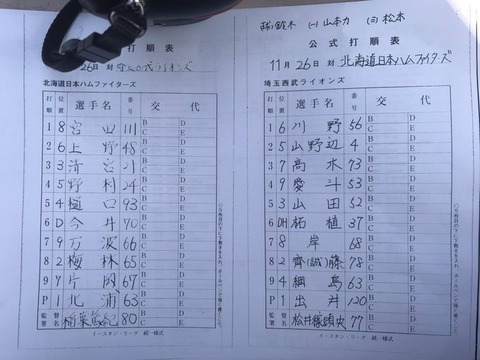 (球)鈴木 (一)山本力 (三)松本
打順表
26日 対 埼玉西武ライオンズ
北海道日本ハムファイターズ
打順 位置 選手名 番号 交代
1 8 宮田 111 B D C E
2 6 上野 48 B D C E
3 3 清宮 21 B D C E
4 5 野村 24 B D C E
5 4 樋口 93 B D C E
6 D 今井 70 B D C E
7 9 万波 66 B D C E
8 2 梅林 65 B D C E
9 7 片岡 67 B D C E
P 1 北浦 63 B D C E
監督 署名 稲葉篤紀 80
イースタン・リーグ 統一様式
公式打順表
11月26日 対 北海道日本ハムファイターズ
埼玉西武ライオンズ
打順 位置 選手名 番号 交代
1 6 川野 56 B D C E
2 5 山野辺 4 B D C E
3 7 高木 73 B D C E
4 9 愛斗 53 B D C E
5 3 山田 52 B D C E
6 DH 柘植 37 B D C E
7 8 岸 68 B D C E
8 2 齊(誠)藤 78 B D C E
9 4 綱島 63 B D C E
P 1 出井 120 B D C E
監督 署名 松井稼頭央 77
イースタン・リーグ 統一様式